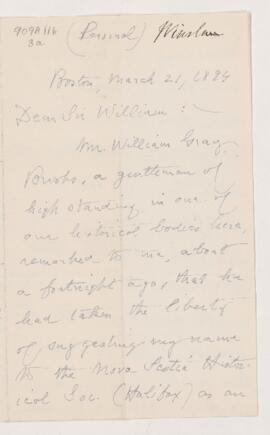 909A/116 (Personal) Winslow
3a
Boston, March 21, 1884
Dear Sir William:
Mr. William Gray
Brooks, a gentleman of
high standing in one of
our historical bodies here,
remarked to me, about
a fortnight ago, that he
had taken the liberty
of suggesting my name
to the Nova Scotia Histor-
ical Soc. (Halifax) as an